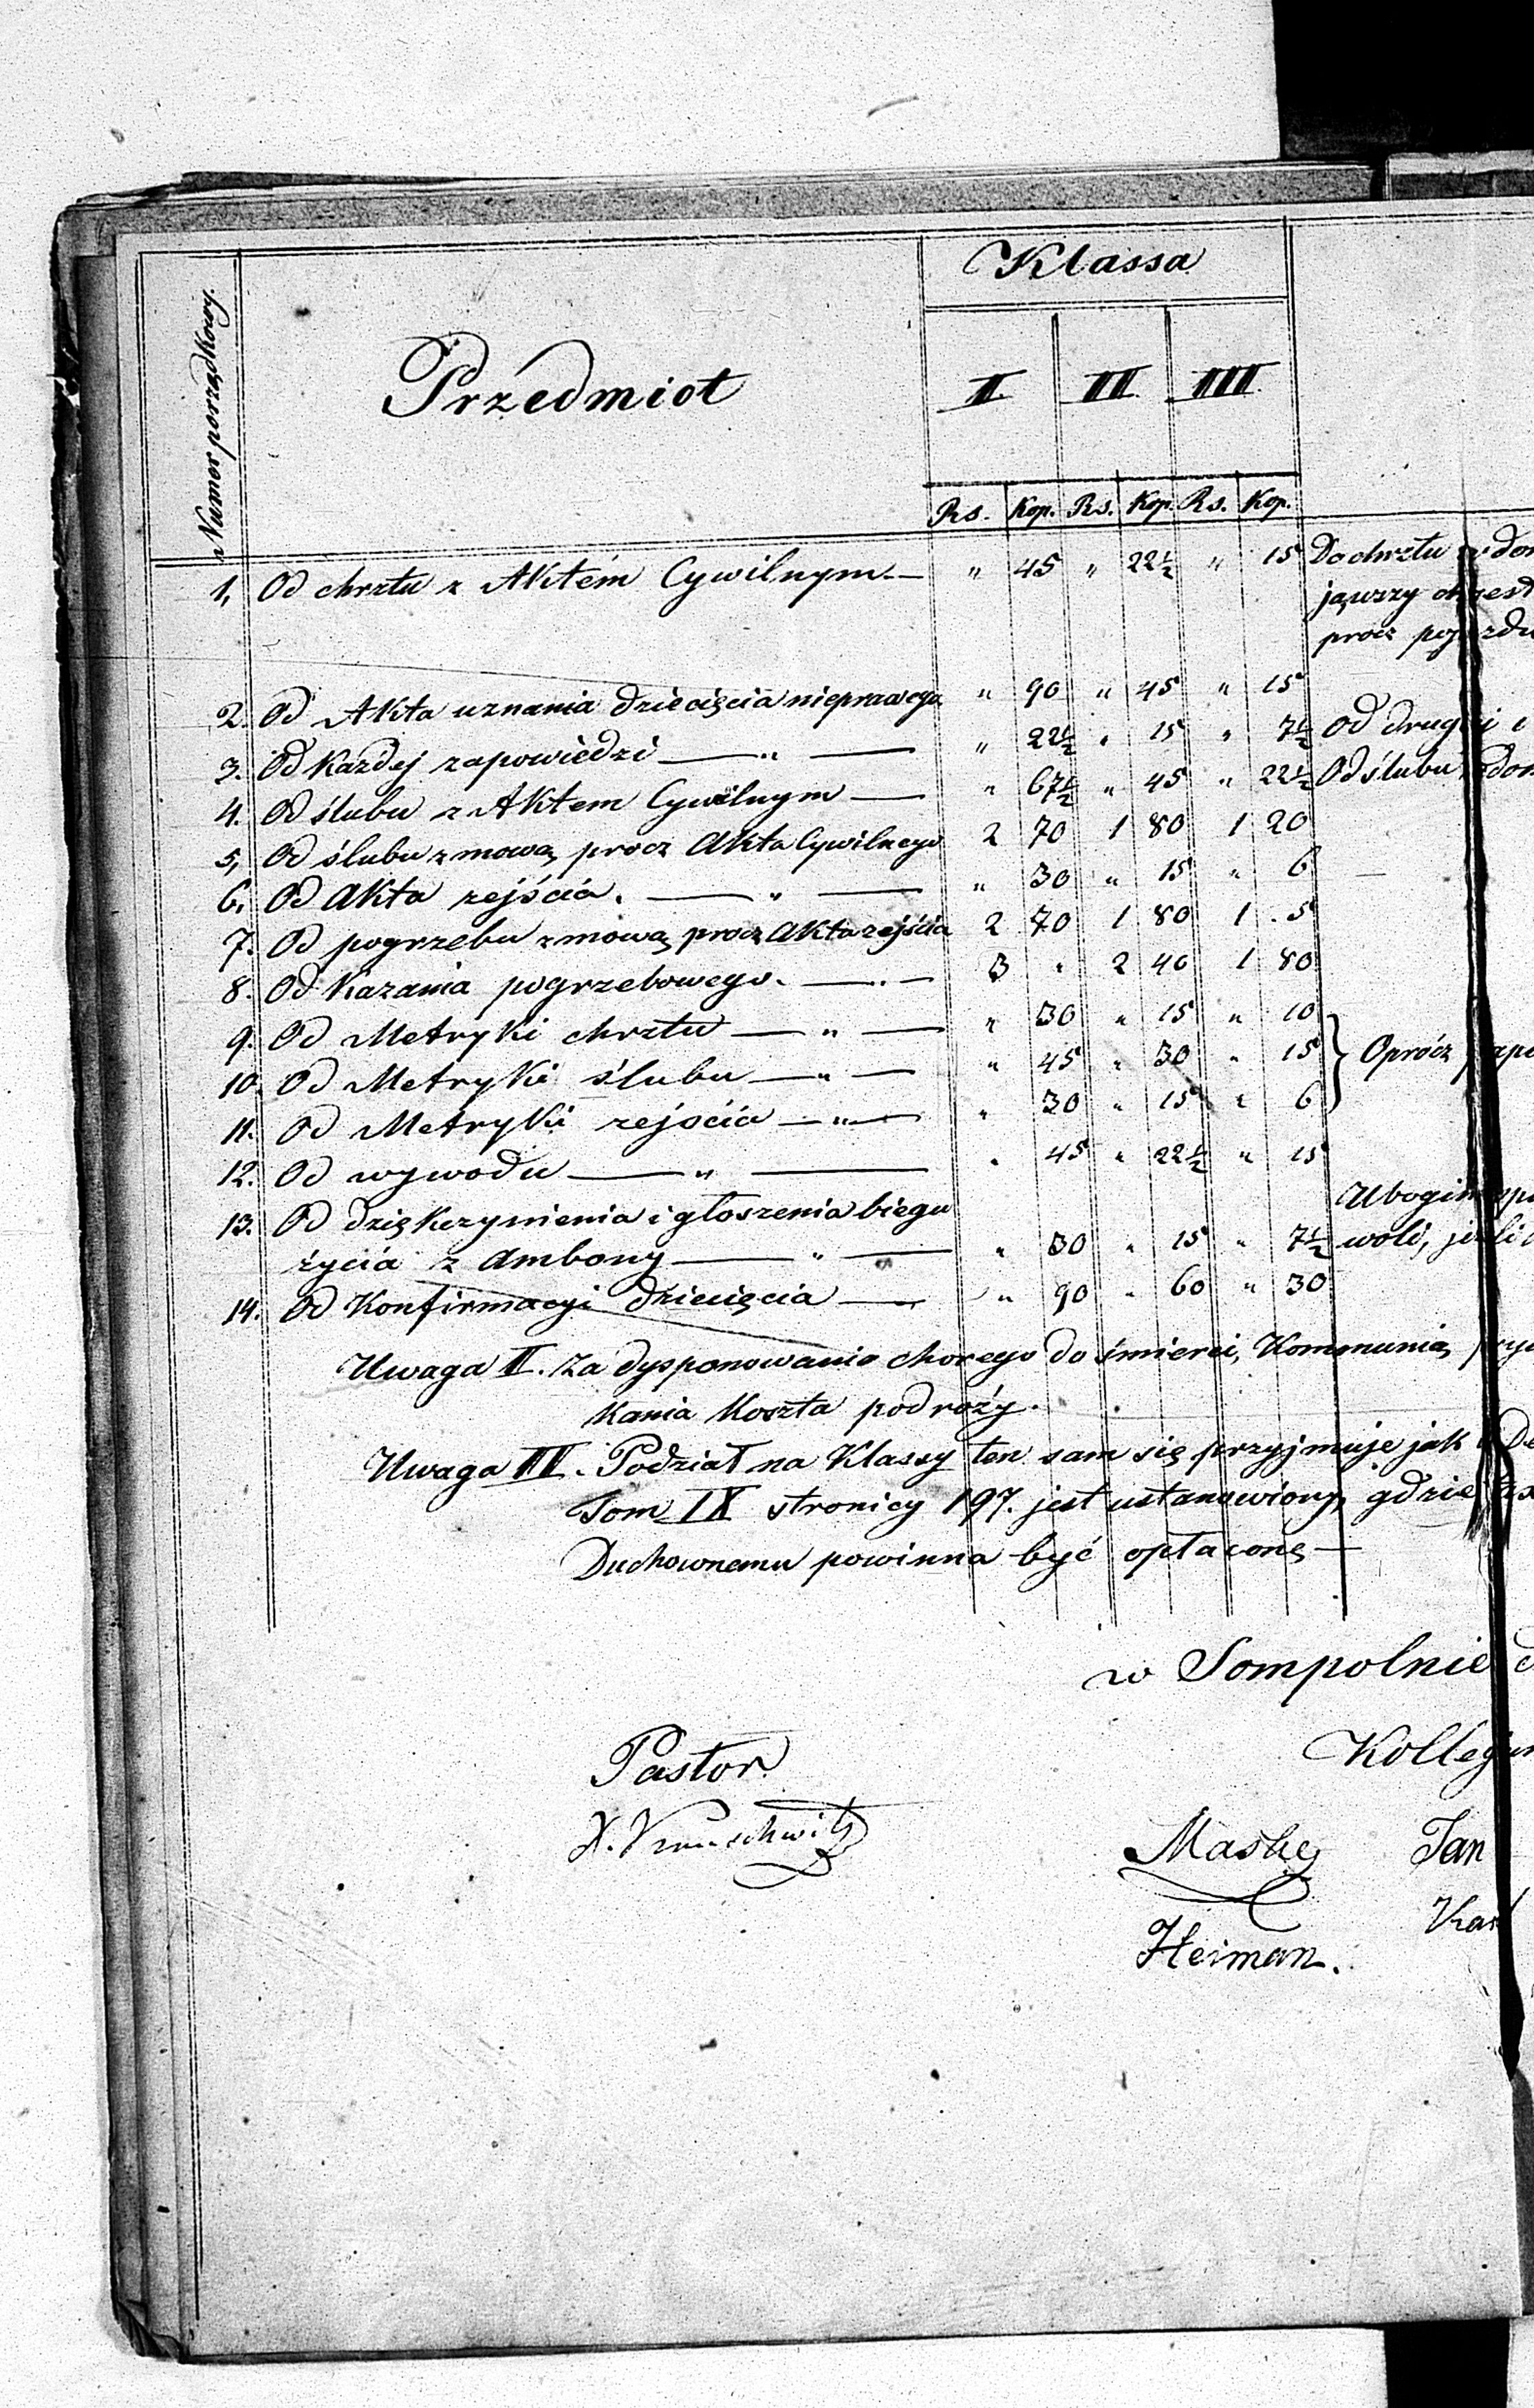 Numer porządkowy.
Przedmiot
Klassa
I. II. III.
Rs. Kop. Rs. Kop. Rs. Kop.
1, Od chrztu z Aktem Cywilnym — " 45 " 22½ " 15 Do chrztu w
jąwszy
procz
2. Od Akta uznania dziecięcia nieprawego " 90 " 45 " 15
3. Od Każdej zapowiedzi — " — " 22½ " 15 " 7½ Od drugiej i
4. Od ślubu z Aktem Cywilnym — " 67½ " 45 " 22½ Od ślubu
5, Od ślubu z mową, procz Akta Cywilnego 2 70 1 80 1 20
6, Od Akta zejścia. — " — " 30 " 15 " 6
7. Od pogrzebu z mową, procz Akta zejścia 2 70 1 80 1 . 5
8. Od Kazania pogrzebowego. — " — 3 " 2 40 1 80
9. Od Metryki chrztu — " — " 30 " 15 " 10
10. Od Metryki ślubu — " — " 45 " 30 " 15 } Oprócz
11. Od Metryki zejscia — " — " 30 " 15 " 6
12. Od wywodu — " — " 45 " 22½ " 15
13. Od dziękczynienia i głoszenia biegu Ubogim
życia z Ambony — " — " 30 " 15 " 7½ woli, jeśli
14. Od Konfirmacyi dziecięcia — " 90 " 60 " 30
Uwaga I. Za dysponowanie chorego do śmierci, Kommunią,
kania Koszta podroży.
Uwaga II. Podział na Klassy ten sam się przyjmuje jak
Tom IX stronicy 197. jest ustanowiony, gdzie
Duchownemu powinna być opłaconę —
w Sompolnie
Pastor
Kollegium
Maske Jan
Karl
Heiman.